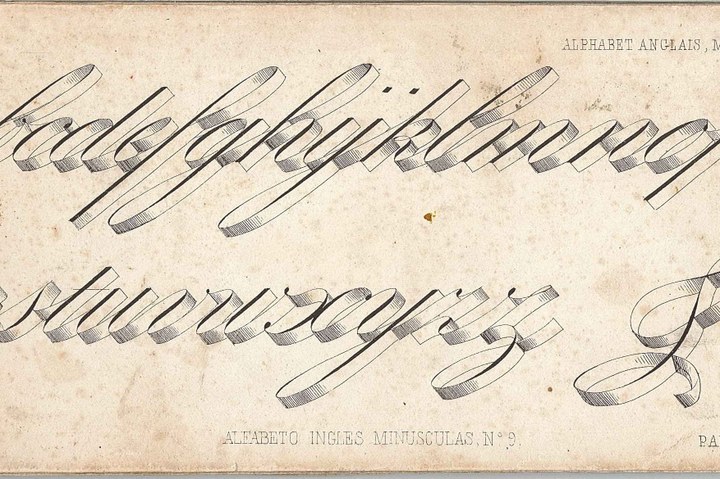 ALPHABET ANGLAIS, M
bcdefghijklmnop
stuvwxyz
ALFABETO INGLES MINUSCULAS, N° 9.
PA